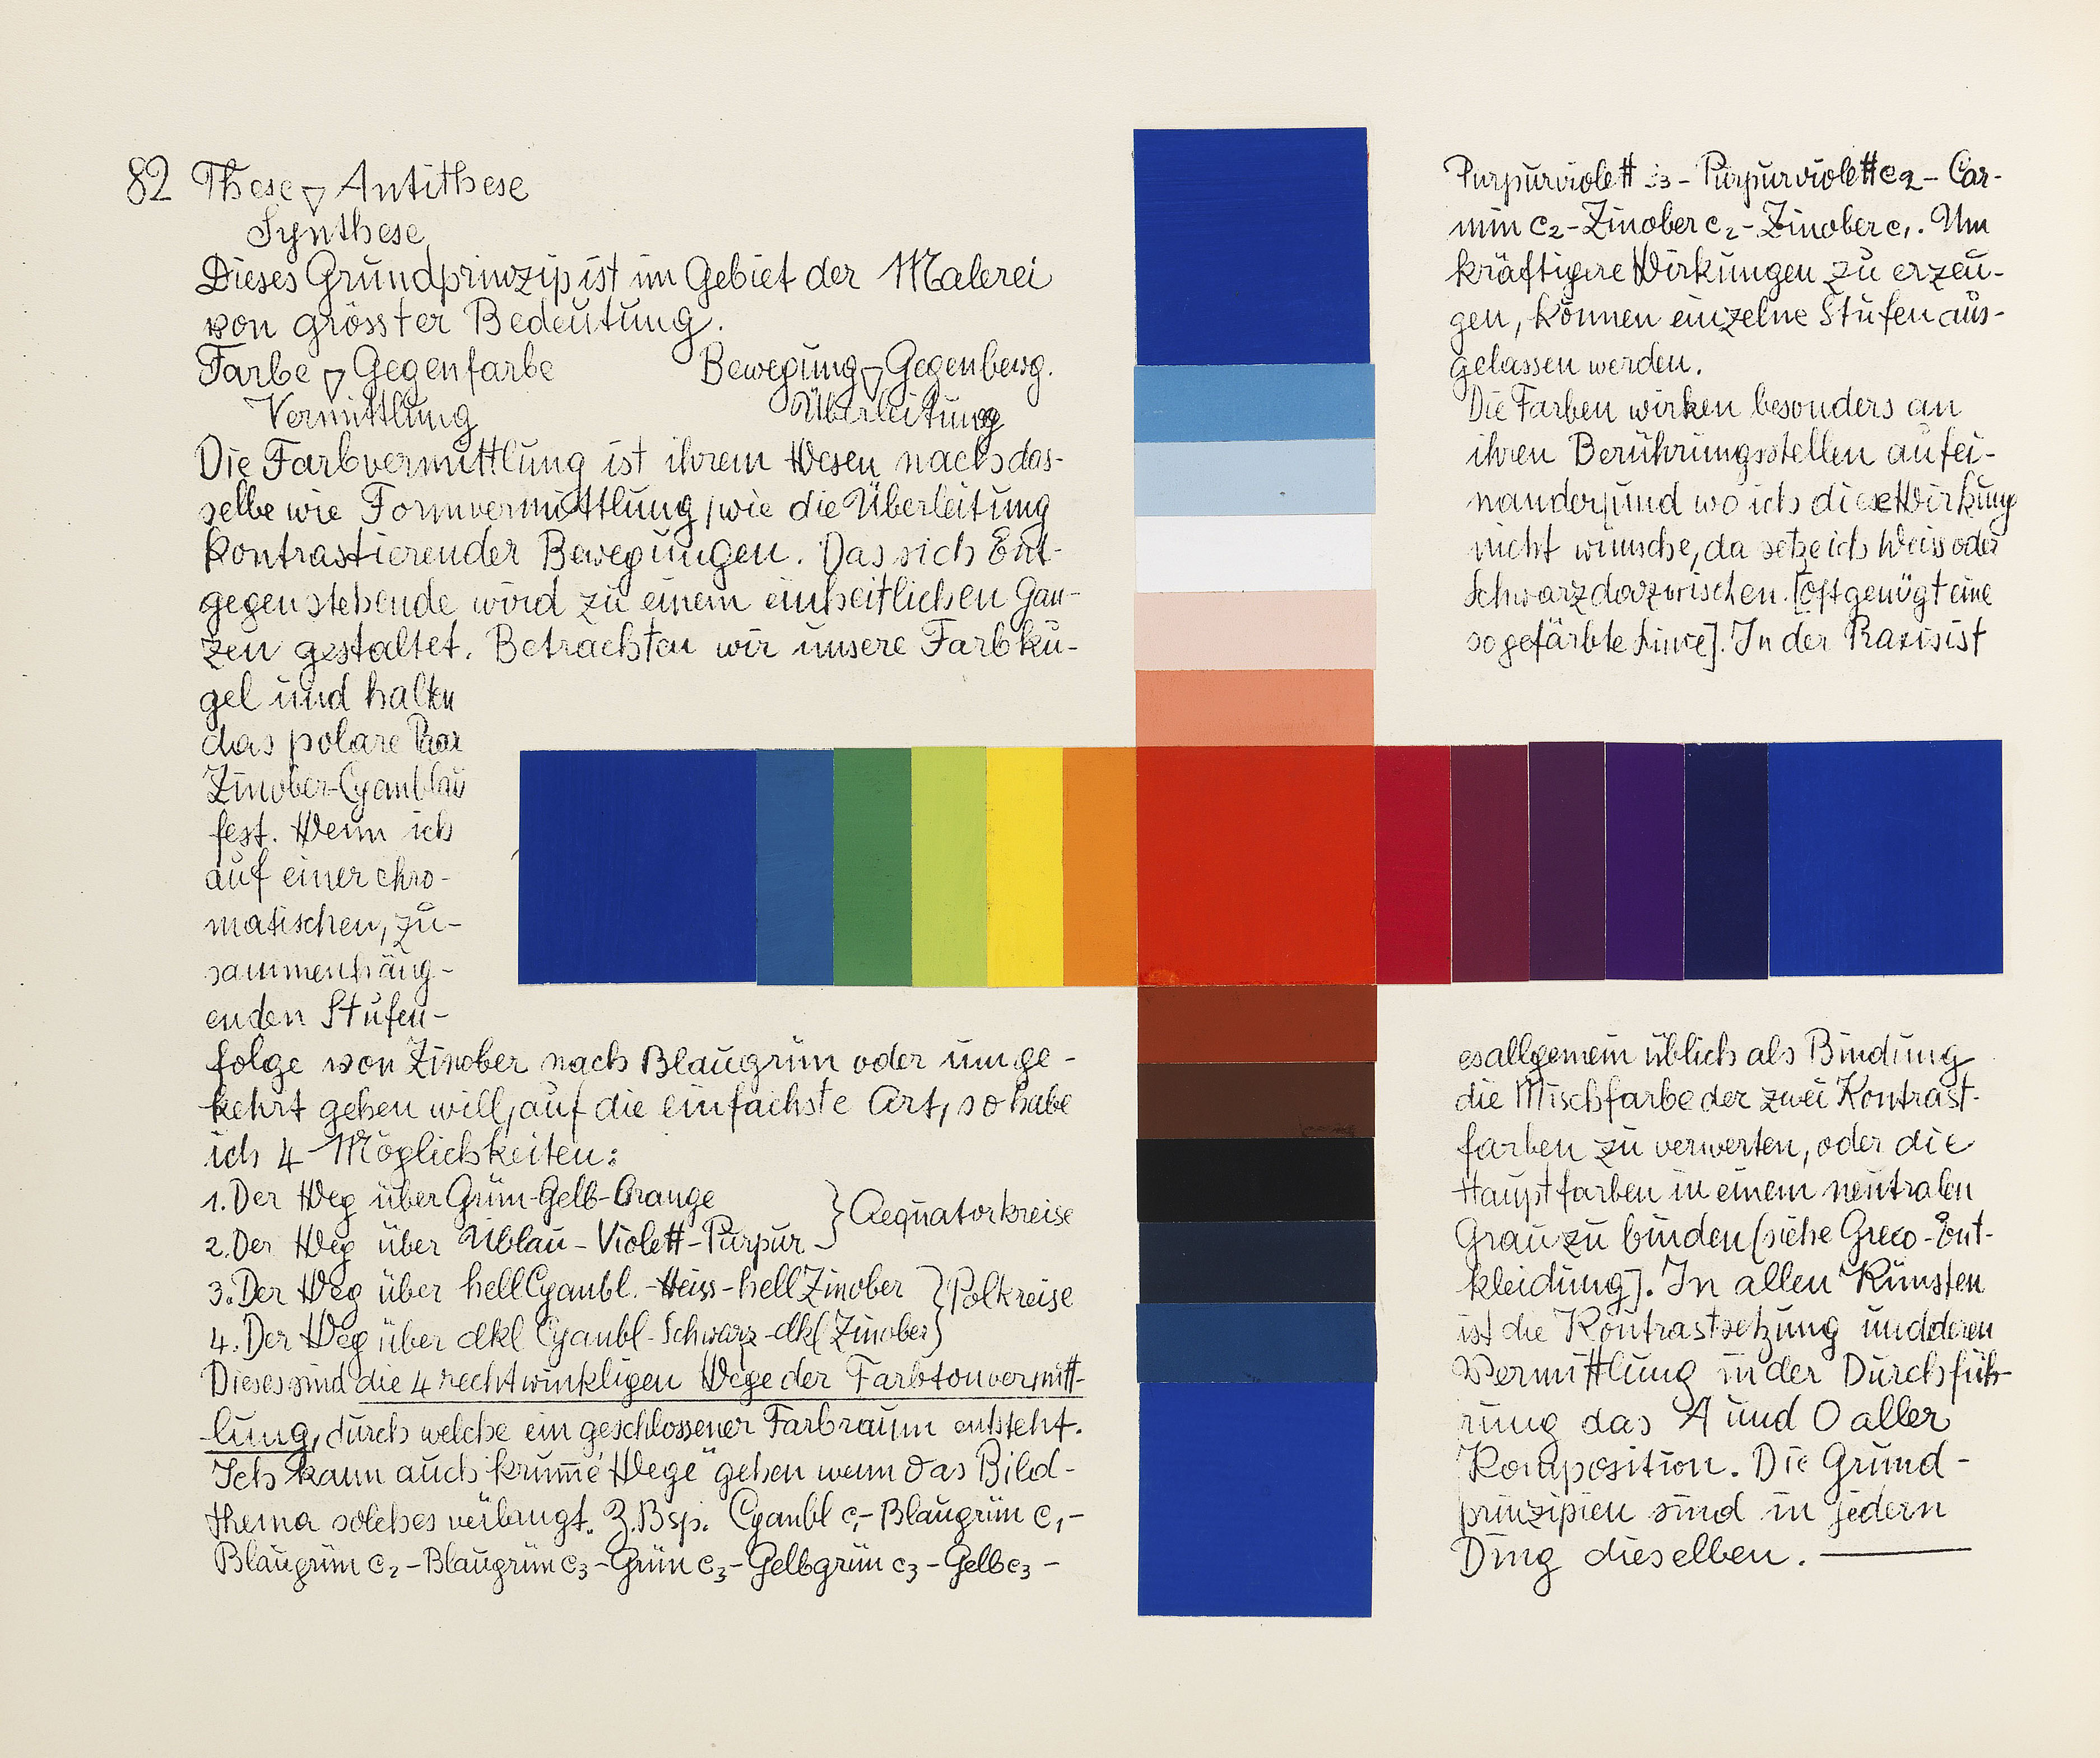 82 These ▽ Antithese
Synthese
Dieses Grundprinzip ist im Gebiet der Malerei
von grösster Bedeutung.
Farbe ▽ Gegenfarbe Bewegung ▽ Gegenbewg.
Vermittlung Überleitung
Die Farbvermittlung ist ihrem Wesen nach das-
selbe wie Formvermittlung, wie die Überleitung
kontrastierender Bewegungen. Das sich Ent-
gegenstehende wird zu einem einheitlichen Gan-
zen gestaltet. Betrachten wir unsere Farbku-
gel und halten
das polare Paar
Zinober-Cyanblau
fest. Wenn ich
auf einer chro-
matischen, zu-
sammenhäng-
enden Stufen-
folge von Zinober nach Blaugrün oder umge-
kehrt gehen will, auf die einfachste Art, so habe
ich 4 Möglichkeiten:
1. Der Weg über Grün-Gelb-Orange
2. Der Weg über Ublau-Violett-Purpur } Aequatorkreise
3. Der Weg über hell Cyanbl.-Weiss-hell Zinober
4. Der Weg über dkl Cyanbl-Schwarz-dkl Zinober } Polkreise
Dieses sind die 4 rechtwinkligen Wege der Farbtonvermitt-
lung, durch welche ein geschlossener Farbraum entsteht.
Ich kann auch "krum̄e Wege" gehen wenn das Bild-
thema solches verlangt. Z.Bsp. Cyanbl c₁-Blaugrün c₁-
Blaugrün c₂-Blaugrün c₃-Grün c₃-Gelbgrün c₃-Gelb c₃-
Purpurviolett c₃-Purpurviolett c₂-Car-
min c₂-Zinober c₂-Zinober c₁. Um
kräftigere Wirkungen zu erzeu-
gen, können einzelne Stufen aus-
gelassen werden.
Die Farben wirken besonders an
ihren Berührungsstellen aufei-
nander, und wo ich diese Wirkung
nicht wünsche, da setze ich Weiss oder
Schwarz dazwischen. [Oft genügt eine
so gefärbte Linie]. In der Praxis ist
es allgemein üblich als Bindung
die Mischfarbe der zwei Kontrast-
farben zu verwerten, oder die
Hauptfarben in einem neutralen
Grau zu binden (siehe Greco-Ent-
kleidung]. In allen Künsten
ist die Kontrastsetzung und deren
Vermittlung in der Durchfüh-
rung das A und O aller
Komposition. Die Grund-
prinzipien sind in jedem
Ding dieselben.